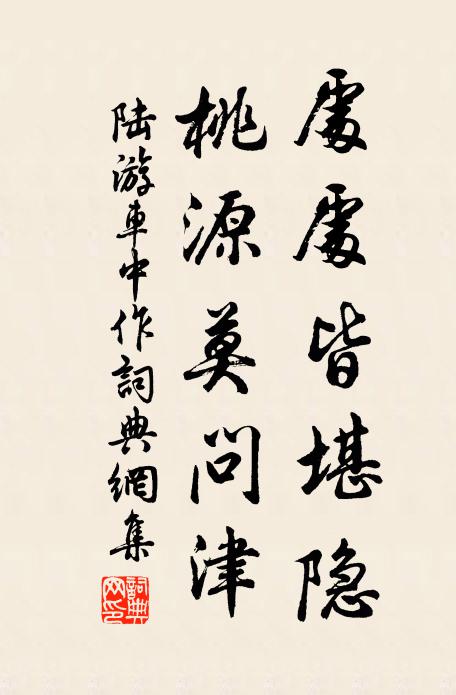 處處皆堪隐
桃源莫问津
陆游車中作詞典網集
詞典網印